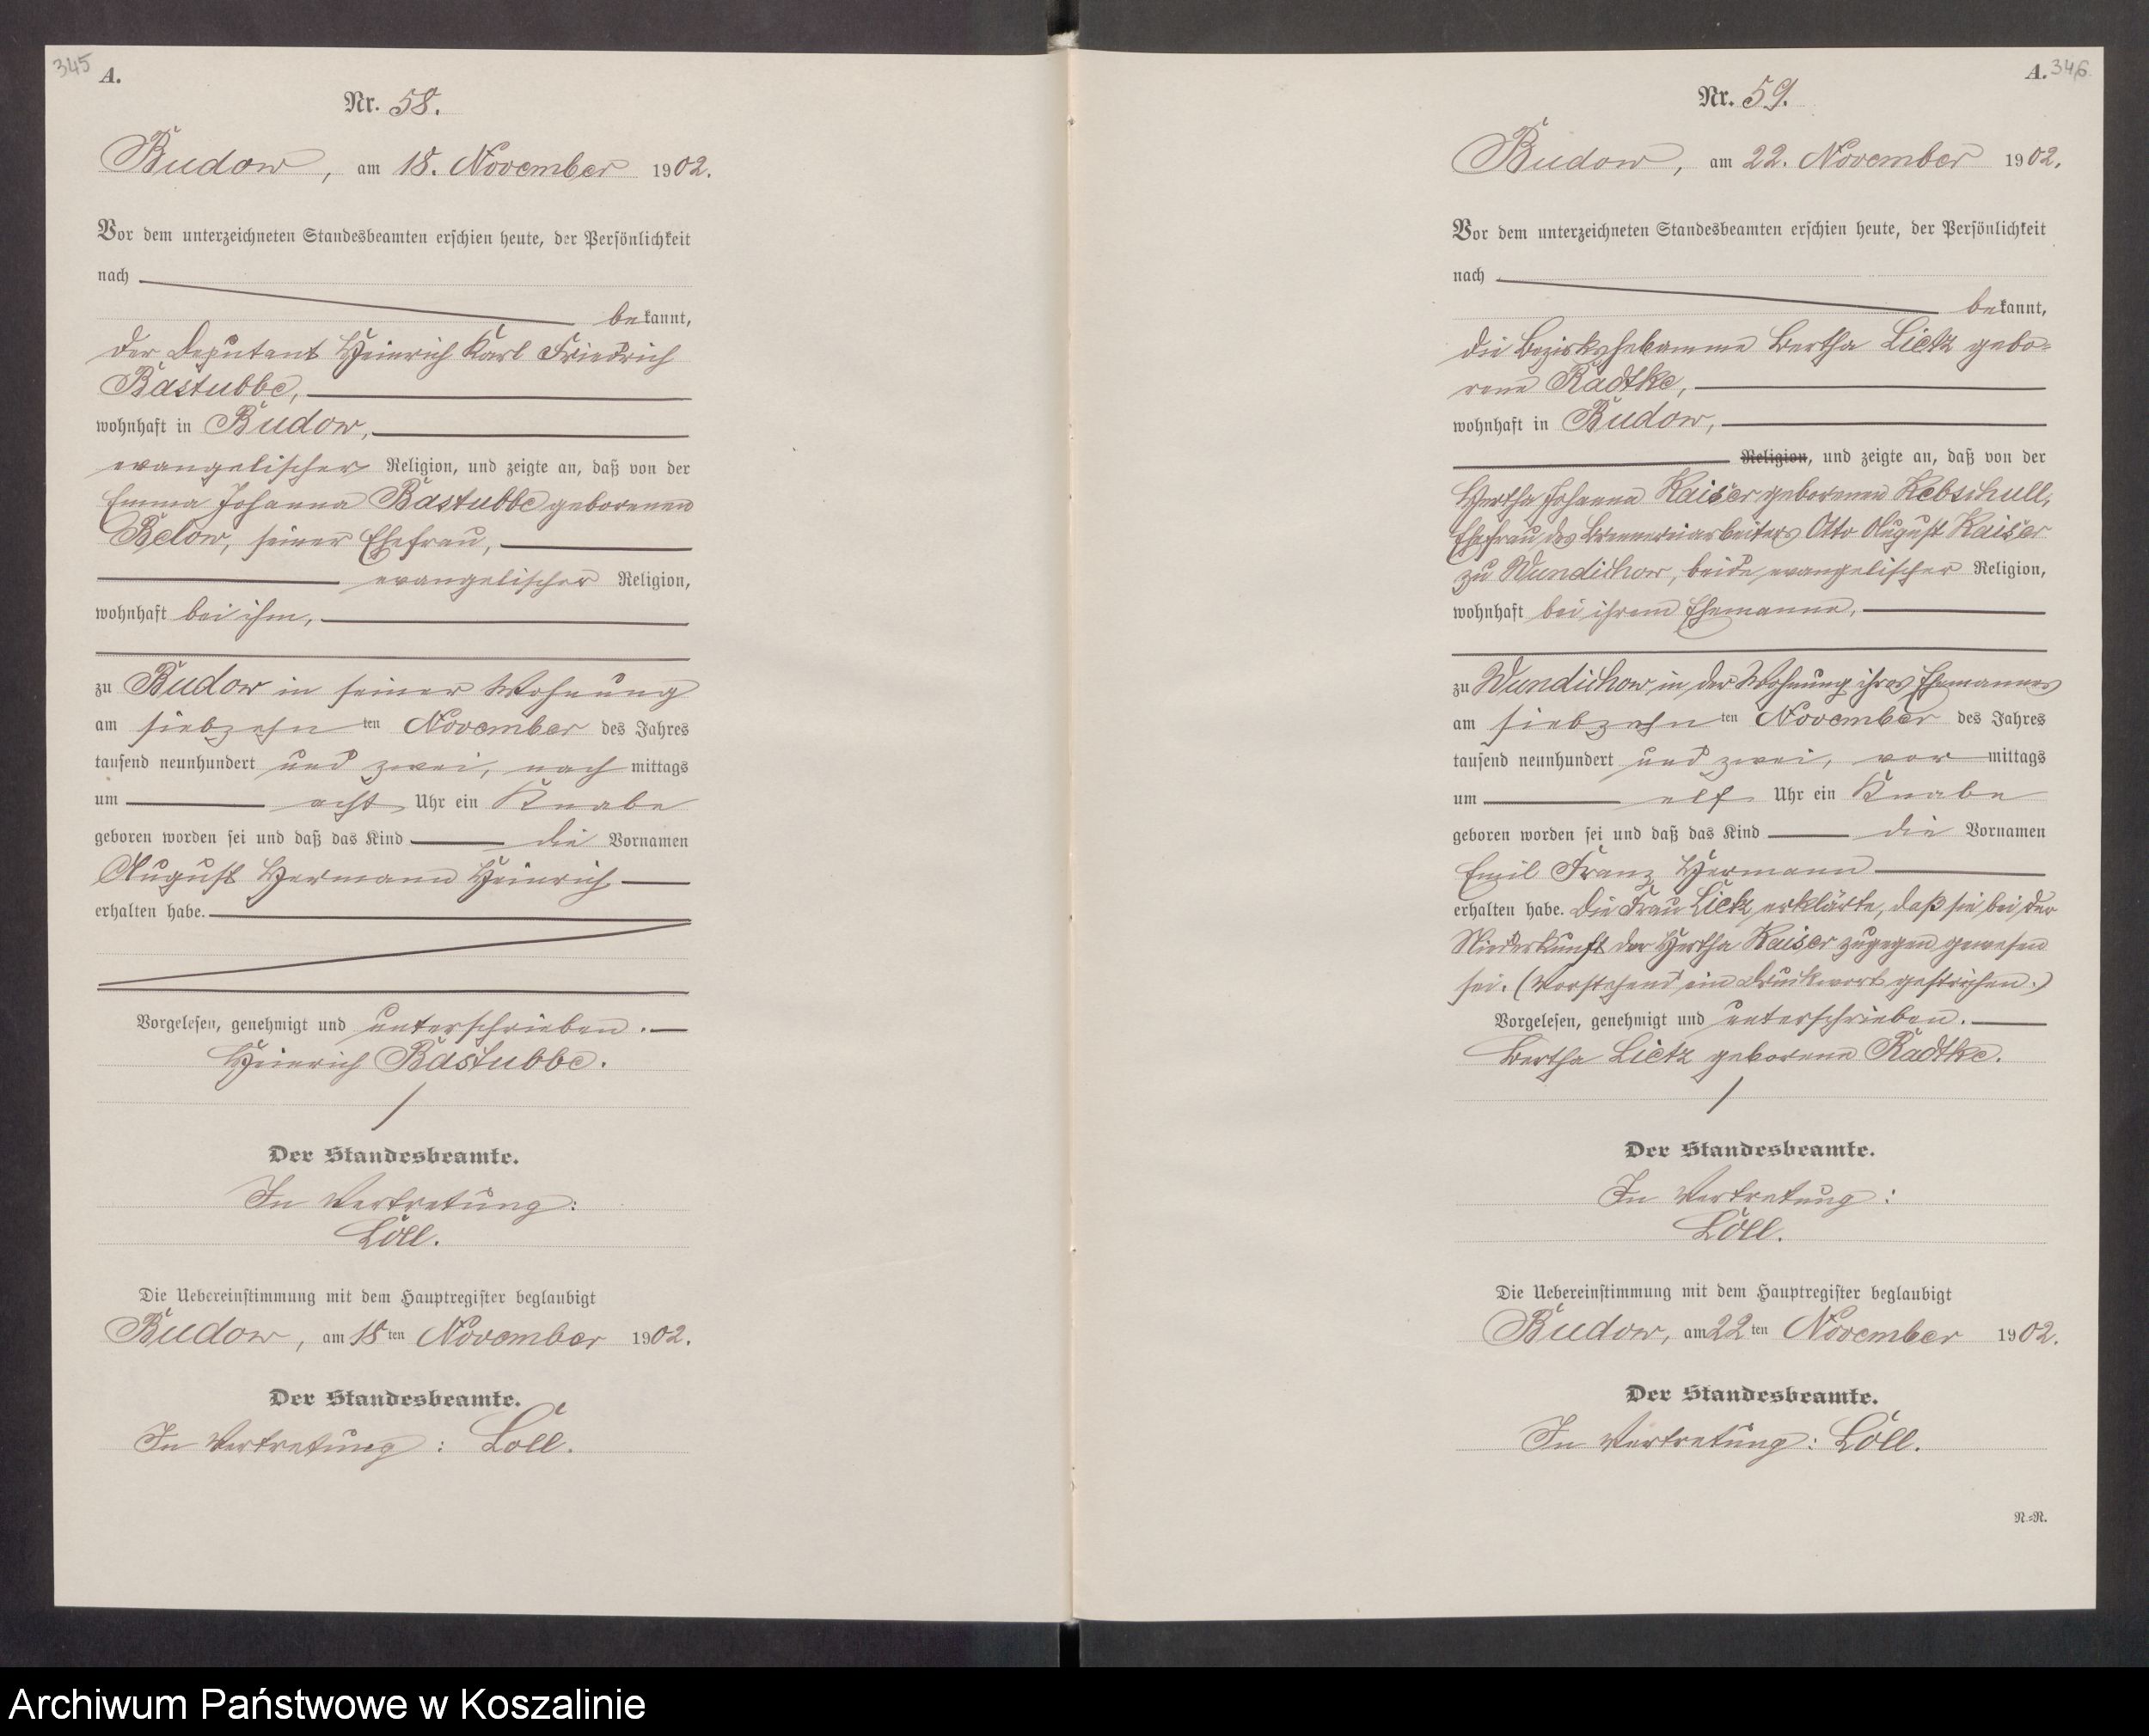 345
A.
Nr. 58.
Budow, am 18. November 1902.
Vor dem unterzeichneten Standesbeamten erschien heute, der Persönlichkeit
nach
bekannt,
der Deputant Heinrich Karl Friedrich
Bastubbe,
wohnhaft in Budow,
evangelischer Religion, und zeigte an, daß von der
Emma Johanna Bastubbe geborenen
Below, seiner Ehefrau,
evangelischer Religion,
wohnhaft bei ihm,
zu Budow in seiner Wohnung
am siebzehnten November des Jahres
tausend neunhundert und zwei, nachmittags
um acht Uhr ein Knabe
geboren worden sei und daß das Kind die Vornamen
August Hermann Heinrich
erhalten habe.
Vorgelesen, genehmigt und unterschrieben.
Heinrich Bastubbe.
Der Standesbeamte.
In Vertretung:
Löll.
Die Uebereinstimmung mit dem Hauptregister beglaubigt
Budow, am 18ten November 1902.
Der Standesbeamte.
In Vertretung: Löll.
A. 346
Nr. 59.
Budow, am 22. November 1902.
Vor dem unterzeichneten Standesbeamten erschien heute, der Persönlichkeit
nach
bekannt,
die Bezirkshebamme Bertha Lietz gebo-
rene Radtke,
wohnhaft in Budow,
Religion, und zeigte an, daß von der
Hertha Johanna Kaiser geborenen Kebschull,
Ehefrau des Brennereiarbeiters Otto August Kaiser
zu Wundichow, beide evangelischer Religion,
wohnhaft bei ihrem Ehemanne,
zu Wundichow in der Wohnung ihres Ehemannes
am siebzehnten November des Jahres
tausend neunhundert und zwei, vormittags
um elf Uhr ein Knabe
geboren worden sei und daß das Kind die Vornamen
Emil Franz Hermann
erhalten habe. Die Frau Lietz erklärte, daß sie bei der
Niederkunft der Hertha Kaiser zugegen gewesen
sei. (Vorstehend ein Druckwort gestrichen.)
Vorgelesen, genehmigt und unterschrieben.
Bertha Lietz geborene Radtke.
Der Standesbeamte.
In Vertretung:
Löll.
Die Uebereinstimmung mit dem Hauptregister beglaubigt
Budow, am 22ten November 1902.
Der Standesbeamte.
In Vertretung: Löll.
N.=R.
Archiwum Państwowe w Koszalinie